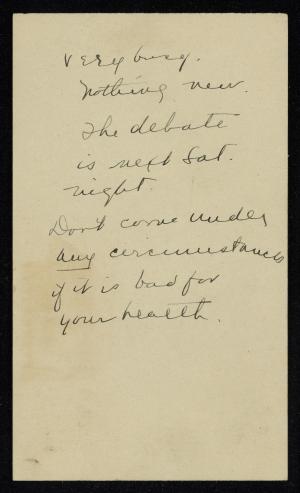 very busy.
Nothing new.
The debate
is next Sat.
night.
Don't come under
any circumstances
if it is bad for
your health.